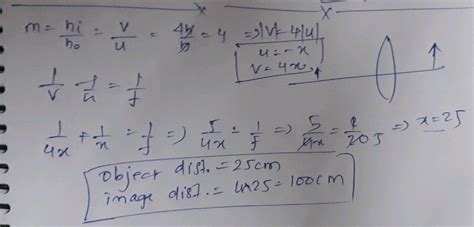 m = hi/ho = v/u = 4h/h = 4 ⇒ |V| = 4|u|
u = -x
v = 4x,
1/v - 1/u = 1/f
1/4x + 1/x = 1/f ⇒ 5/4x = 1/f ⇒ 5/4x = 1/20 ⇒ x = 25
object dist. = 25cm
image dist. = 4×25 = 100cm